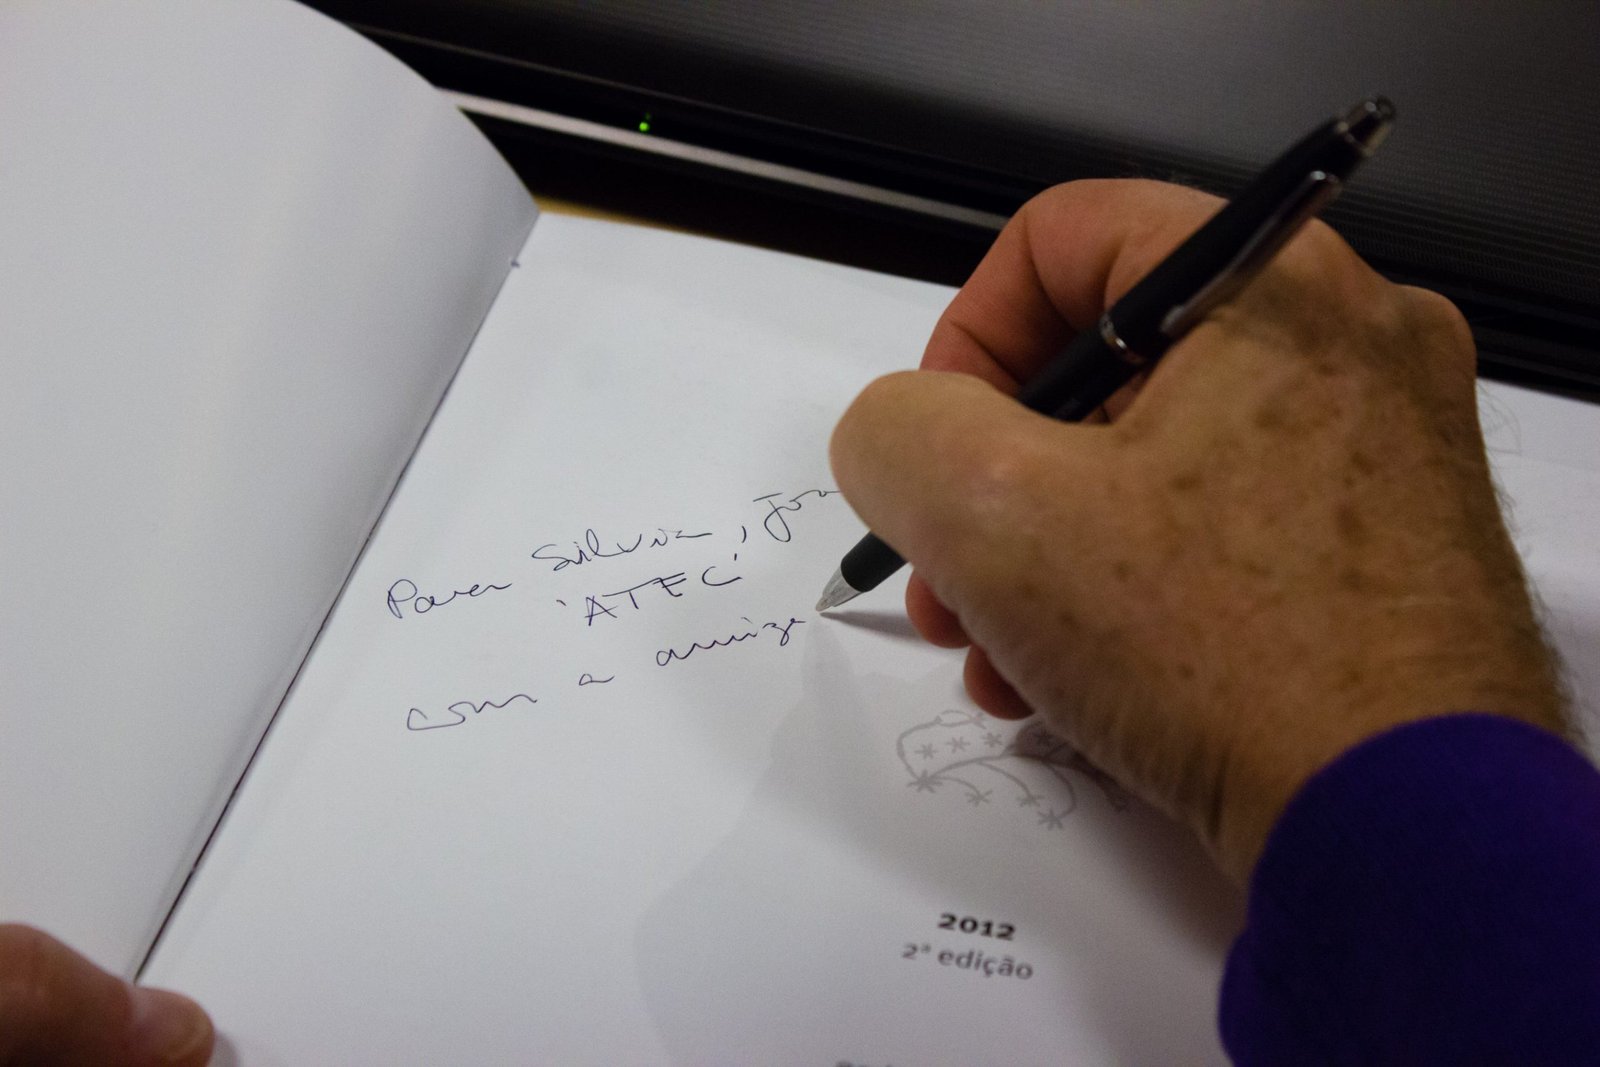 Para Silvia, Joa
'ATEC'
com a amiza
2012
2ª edição